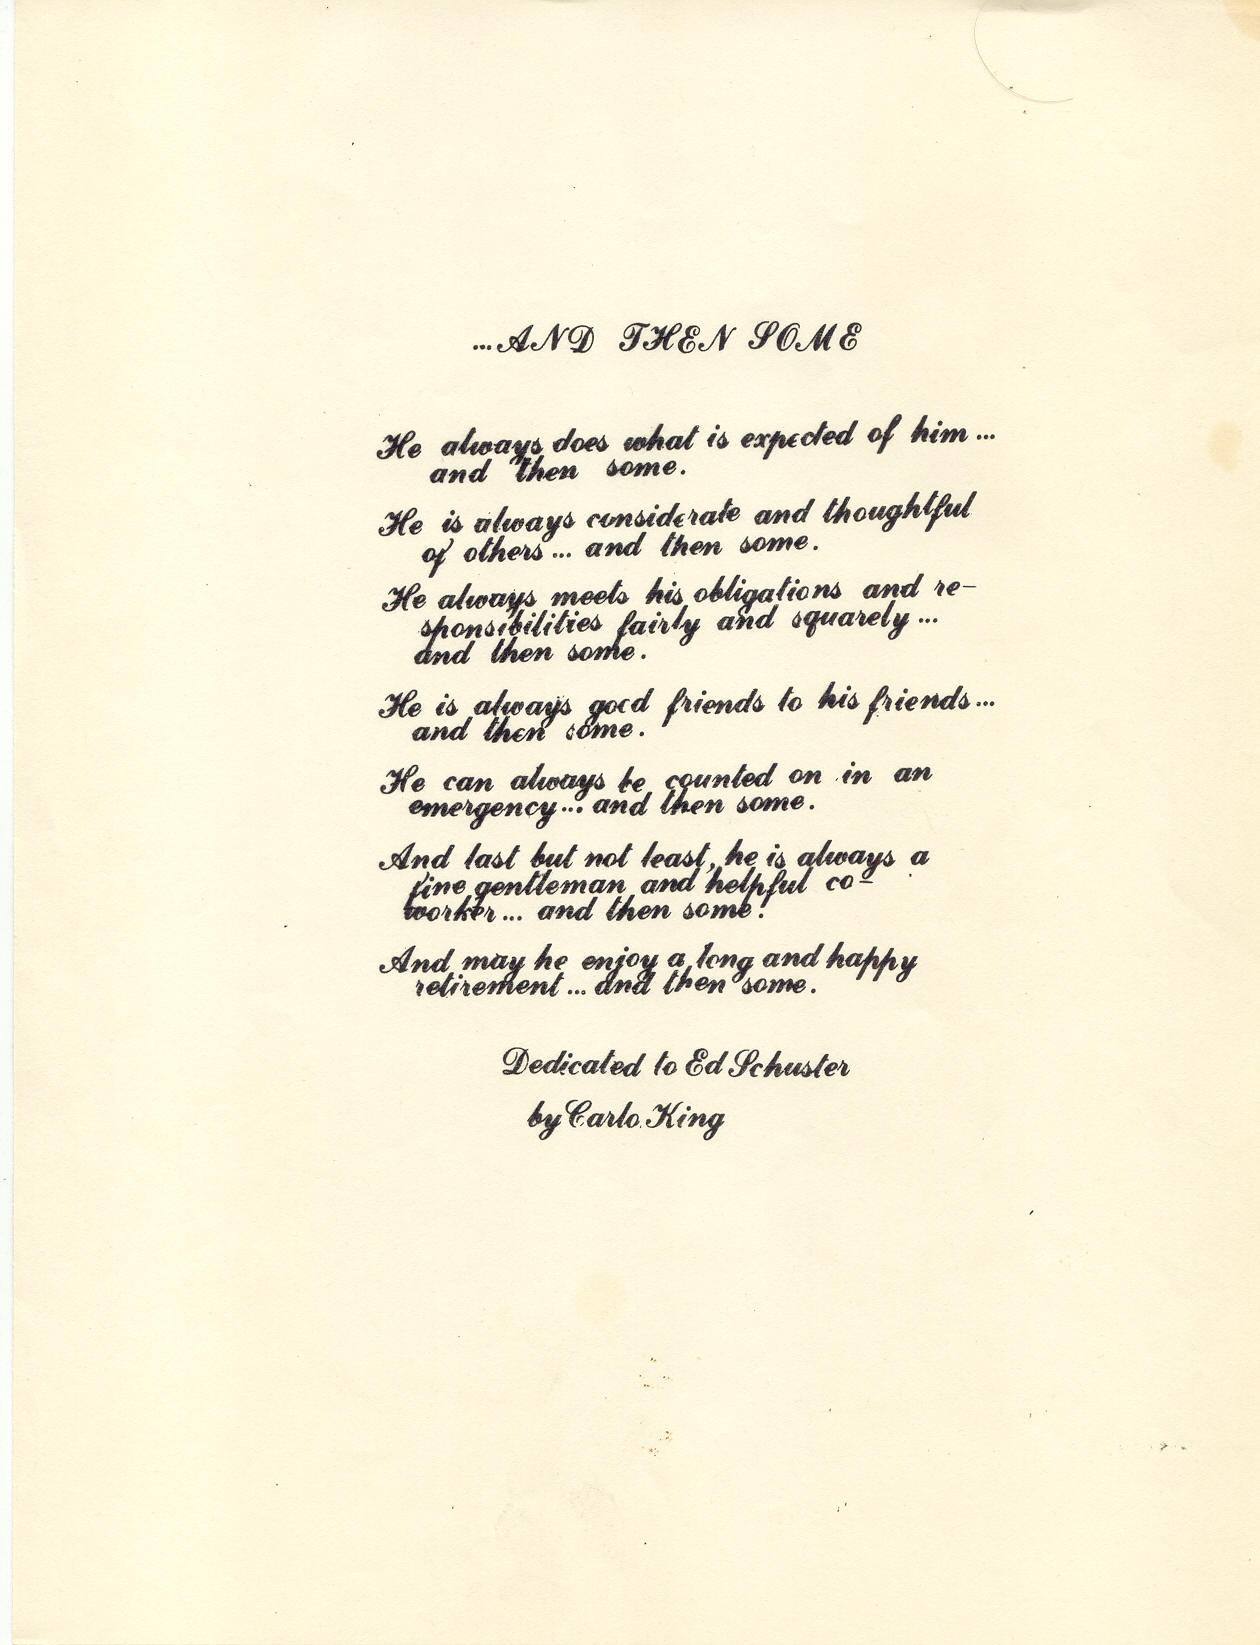 ...AND THEN SOME
He always does what is expected of him...
and then some.
He is always considerate and thoughtful
of others... and then some.
He always meets his obligations and re-
sponsibilities fairly and squarely...
and then some.
He is always good friends to his friends...
and then some.
He can always be counted on in an
emergency... and then some.
And last but not least, he is always a
fine gentleman and helpful co-
worker... and then some!
And may he enjoy a long and happy
retirement... and then some.
Dedicated to Ed Schuster
by Carlo King